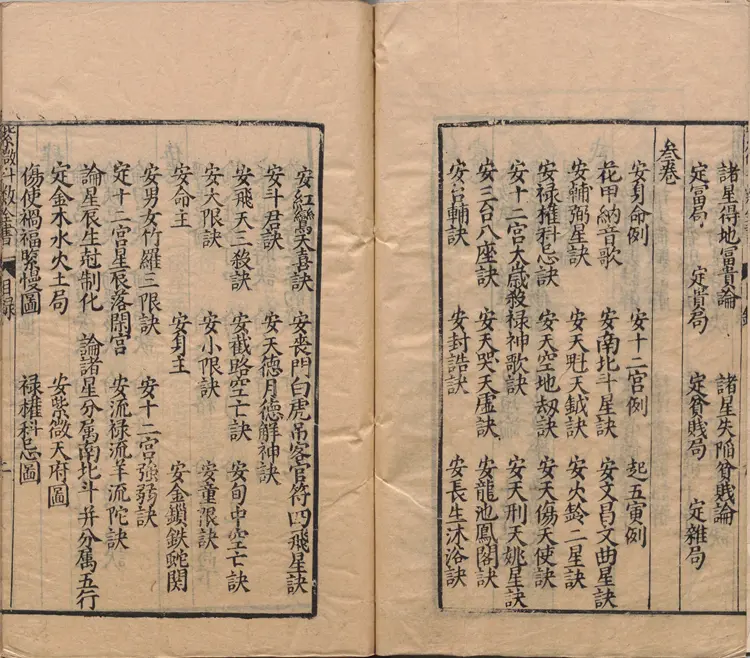 諸星得地富貴論 諸星失陷貧賤論
定富局 定貴局 定貧賤局 定雜局
叁卷
安身命例 安十二宮例 起五寅例
花甲納音歌 安南北斗星訣 安文昌文曲星訣
安輔弼星訣 安天魁天鉞訣 安火鈴二星訣
安祿權科忌訣 安天空地刼訣 安天傷天使訣
安十二宮太歲殺祿神歌訣 安天刑天姚星訣
安三台八座訣 安天哭天虛訣 安龍池鳳閣訣
安台輔訣 安封誥訣 安長生沐浴訣
安紅鸞天喜訣 安喪門白虎吊客官符四飛星訣
安斗君訣 安天德月德解神訣
安飛天三殺訣 安截路空亡訣 安旬中空亡訣
安大限訣 安小限訣 安童限訣
安命主 安身主 安金鎖鉄蛇関
安男女竹羅三限訣 安十二宮強弱訣
定十二宮星辰落閑宮 安流祿流羊流陀訣
論星辰生尅制化 論諸星分属南北斗并分属五行
定金木水火土局 安紫微天府圖
傷使禍福緊慢圖 祿權科忌圖
紫微斗數全書 目錄